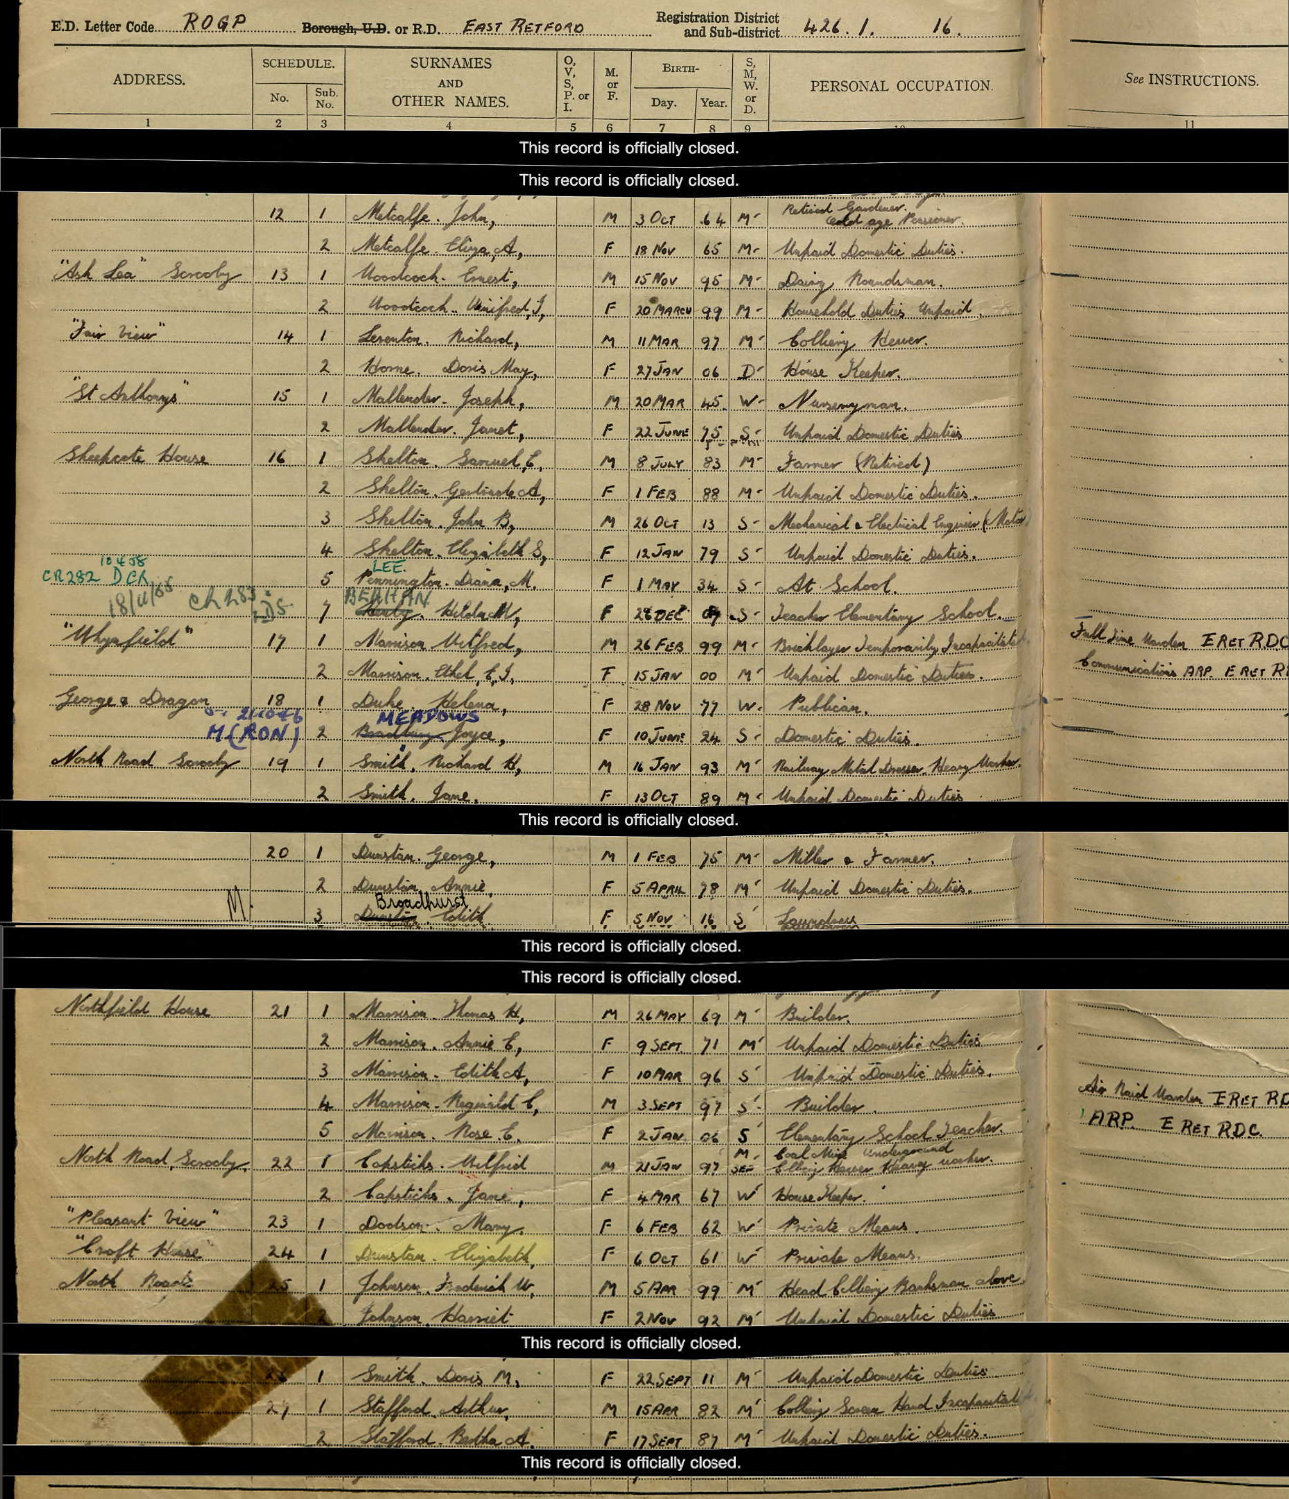 E.D. Letter Code ROGP Borough, U.D. or R.D. EAST RETFORD Registration District and Sub-district 426.1. 16.
ADDRESS. SCHEDULE. No. Sub. No. SURNAMES AND OTHER NAMES. O, V, S, P. or I. M. or F. BIRTH- Day. Year. S, M, W. or D. PERSONAL OCCUPATION. See INSTRUCTIONS.
1 2 3 4 5 6 7 8 9 10 11
This record is officially closed.
This record is officially closed.
12 1 Metcalfe. John, M 3 OCT 64 M Retired Gardener. Old age Pensioner.
2 Metcalfe Eliza, A, F 18 NOV 65 M Unpaid Domestic Duties.
"Ash Lea" Scrooby 13 1 Woodcock. Ernest, M 15 NOV 95 M Dairy Roundsman.
2 Woodcock. Winifred, J, F 20 MARCH 99 M Household Duties Unpaid.
"Fair View" 14 1 Richard, M 11 MAR 97 M Colliery Hewer.
2 Horne. Doris May, F 27 JAN 06 D House Keeper.
"St Anthonys" 15 1 Mallender. Joseph, M 20 MAR 45 W Nurseryman.
2 Mallender. Janet, F 22 JUNE 75 S Unpaid Domestic Duties
Sheepcote House 16 1 Shelton. Samuel, C, M 8 JULY 83 M Farmer (Retired)
2 Shelton. Gertrude A, F 1 FEB 88 M Unpaid Domestic Duties.
3 Shelton. John B, M 26 OCT 13 S Mechanical & Electrical Engineer (Motor)
4 Shelton. Elizabeth S, F 12 JAN 79 S Unpaid Domestic Duties.
LEE.
CR282 DER 5 Pennington. Diana, M. F 1 MAY 34 S At School.
7 Hilda M, F 28 DEC 07 S Teacher Elementary School.
"Whynfield" 17 1 Marrison Wilfred, M 26 FEB 99 M Bricklayer Temporarily Incapacitated Full Time Warden E RET RDC
2 Marrison. Ethel, E, J, F 15 JAN 00 M Unpaid Domestic Duties. Communications ARP E RET R
George & Dragon 18 1 Duke Helena, F 28 NOV 77 W. Publican.
MEADOWS
M (RON) 2 Bradbury Joyce, F 10 JUNE 24 S Domestic Duties.
North Road Scrooby 19 1 Smith, Richard H, M 16 JAN 93 M Railway Metal Dresser. Heavy Worker.
2 Smith. Jane. F 13 OCT 89 M Unpaid Domestic Duties
This record is officially closed.
20 1 Dunstan. George, M 1 FEB 75 M Miller & Farmer.
2 Dunstan, Annie, F 5 APRIL 78 M Unpaid Domestic Duties.
Broadhurst
M. 3 Dunstan Edith F 5 NOV 16 S Laundress
This record is officially closed.
This record is officially closed.
Northfield House 21 1 Marrison. Thomas H, M 26 MAY 69 M Builder.
2 Marrison. Annie E, F 9 SEPT 71 M Unpaid Domestic Duties
3 Marrison. Edith A, F 10 MAR 96 S Unpaid Domestic Duties.
4 Marrison. Reginald C, M 3 SEPT 97 S Builder. Air Raid Warden E RET RD
5 Marrison. Rose E. F 2 JAN 06 S Elementary School Teacher. ARP. E RET RDC.
North Road, Scrooby 22 1 Capsticks. Wilfrid M 21 JAN 97 M. Coal Mine underground Colliery Hewer Heavy worker.
2 Capsticks. Jane, F 4 MAR 67 W House Keeper.
"Pleasant View" 23 1 Dodson. Mary. F 6 FEB 62 W Private Means.
"Croft House" 24 1 Dunstan. Elizabeth, F 6 OCT 61 W Private Means.
North Road 25 1 Johnson. Frederick W, M 5 APR 99 M Head Colliery Banksman above.
2 Johnson, Harriet F 2 NOV 92 M Unpaid Domestic Duties
This record is officially closed.
1 Smith. Doris M, F 22 SEPT 11 M Unpaid Domestic Duties.
27 1 Stafford. Arthur, M 15 APR 82 M Colliery Screen Hand Incapacitated
2 Stafford. Bertha A. F 17 SEPT 87 M Unpaid Domestic Duties.
This record is officially closed.